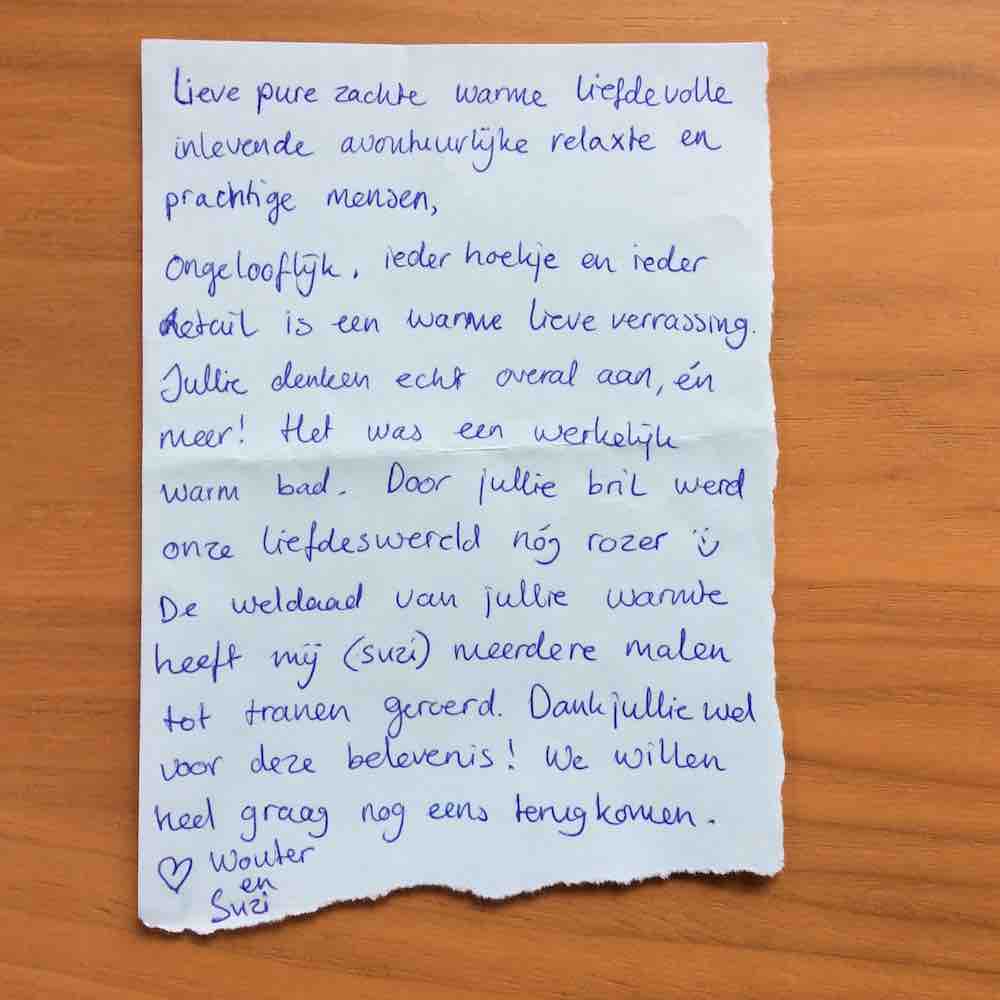 Lieve pure zachte warme liefdevolle
inlevende avontuurlijke relaxte en
prachtige mensen,
Ongelooflijk, ieder hoekje en ieder
detail is een warme lieve verrassing.
Jullie denken echt overal aan, én
meer! Het was een werkelijk
warm bad. Door jullie bril werd
onze liefdeswereld nóg rozer ü
De weldaad van jullie warmte
heeft mij (suzi) meerdere malen
tot tranen geroerd. Dank jullie wel
voor deze belevenis! We willen
heel graag nog eens terugkomen.
♡ Wouter
en
Suzi